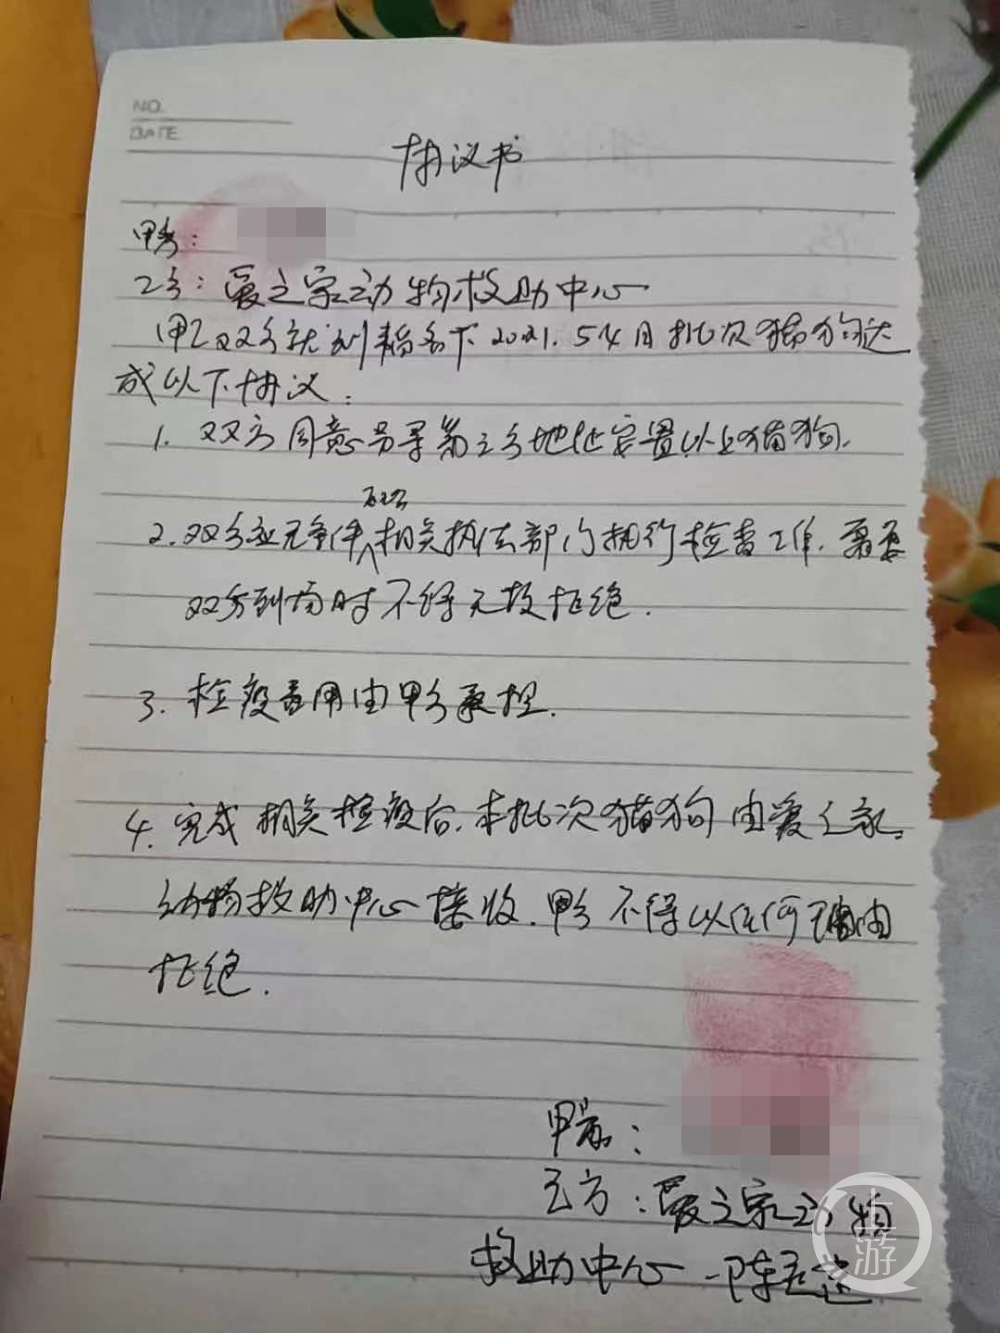 NO.
DATE
协议书
甲方：
乙方：爱之家动物救助中心
甲乙双方就 名下2021.5 4月批次猫狗达
成以下协议：
1. 双方同意另寻第三方地址安置以上猫狗.
配合
2. 双方应无条件∧相关执法部门执行检查工作. 需要
双方到场时不得无故拒绝.
3. 检疫费用由甲方承担.
4. 完成相关检疫后. 本批次猫狗由爱之家
动物救助中心接收. 甲方不得以任何理由
拒绝.
甲方：
乙方：爱之家动物
救助中心 陈
上游